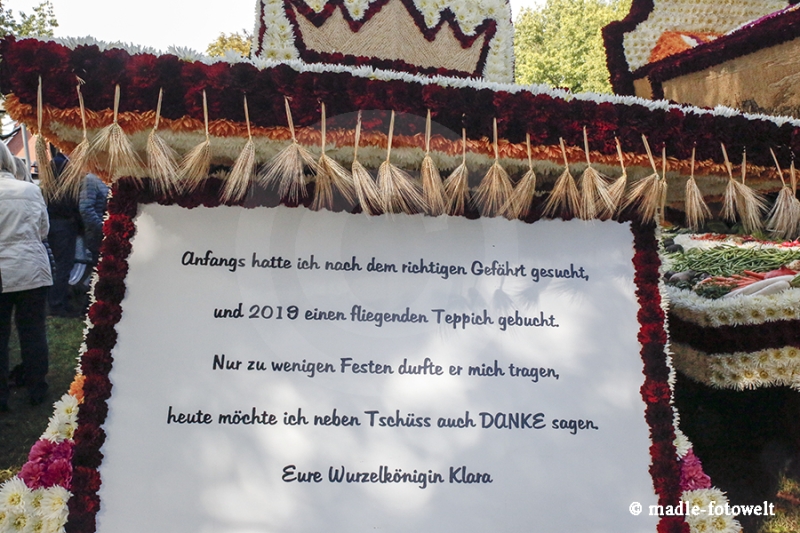 Anfangs hatte ich nach dem richtigen Gefährt gesucht,
und 2019 einen fliegenden Teppich gebucht.
Nur zu wenigen Festen durfte er mich tragen,
heute möchte ich neben Tschüss auch DANKE sagen.
Eure Wurzelkönigin Klara
© madle-fotowelt